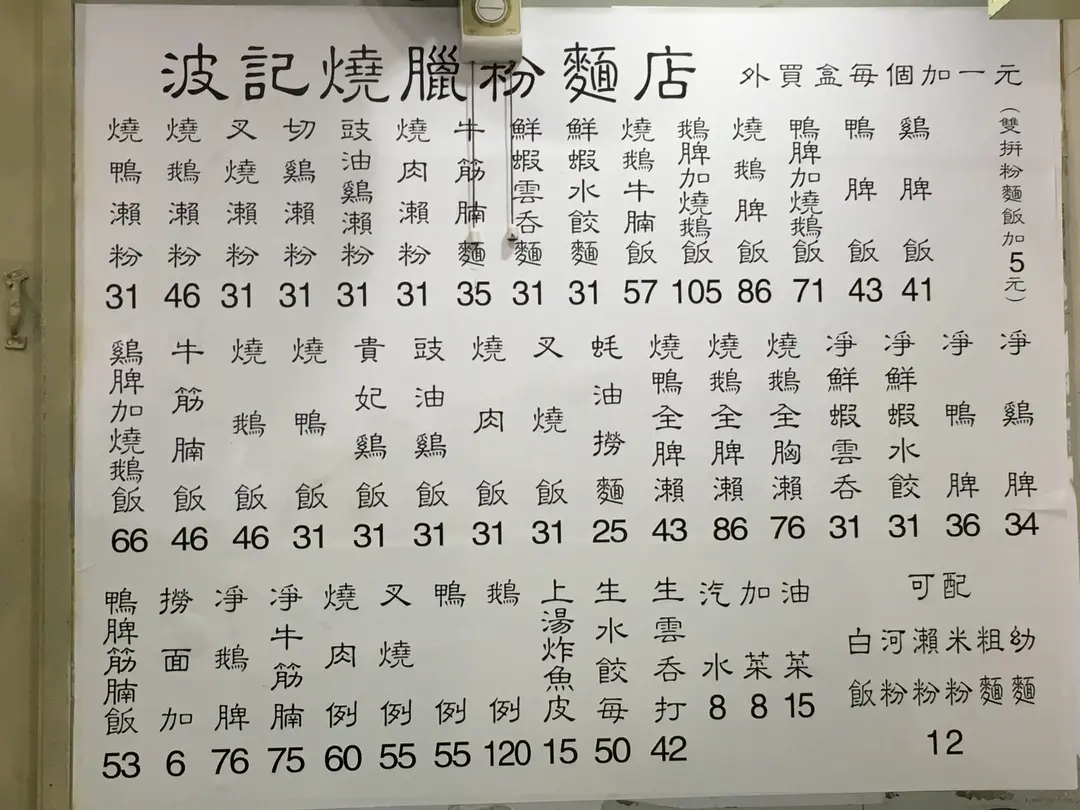 波記燒臘粉麵店
外買盒每個加一元
（雙拼粉麵飯加5元）
燒鴨瀨粉 31
燒鵝瀨粉 46
叉燒瀨粉 31
切鷄瀨粉 31
豉油鷄瀨粉 31
燒肉瀨粉 31
牛筋腩麵 35
鮮蝦雲吞麵 31
鮮蝦水餃麵 31
燒鵝牛腩飯 57
鵝脾加燒鵝飯 105
燒鵝脾飯 86
鴨脾加燒鵝飯 71
鴨脾飯 43
鷄脾飯 41
鷄脾加燒鵝飯 66
牛筋腩飯 46
燒鵝飯 46
燒鴨飯 31
貴妃鷄飯 31
豉油鷄飯 31
燒肉飯 31
叉燒飯 31
蚝油撈麵 25
燒鴨全脾瀨 43
燒鵝全脾瀨 86
燒鵝全胸瀨 76
淨鮮蝦雲吞 31
淨鮮蝦水餃 31
淨鴨脾 36
淨鷄脾 34
鴨脾筋腩飯 53
撈面加 6
淨鵝脾 76
淨牛筋腩 75
燒肉例 60
叉燒例 55
鴨例 55
鵝例 120
上湯炸魚皮 15
生水餃每 50
生雲吞打 42
汽水 8
加菜 8
油菜 15
可配
白飯 河粉 瀨粉 米粉 粗麵 幼麵
12